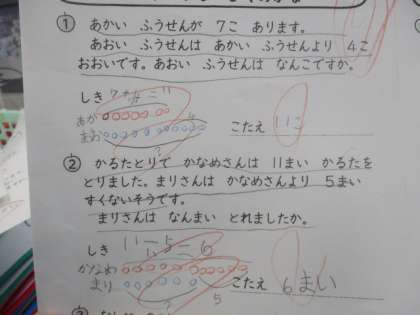 ① あかい ふうせんが 7こ あります。
あおい ふうせんは あかい ふうせんより 4こ
おおいです。あおい ふうせんは なんこですか。
しき 7+4=11
あか
あお 4
こたえ 11こ
?
② かるたとりで かなめさんは 11まい かるたを
とりました。まりさんは かなめさんより 5まい
すくないそうです。
まりさんは なんまい とれましたか。
しき 11-5=6
かなめ
まり
こたえ 6まい
? 5